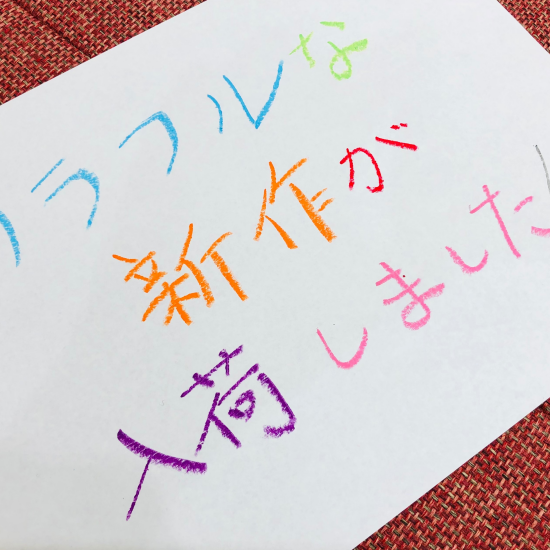 カラフルな
新作が
入荷しました